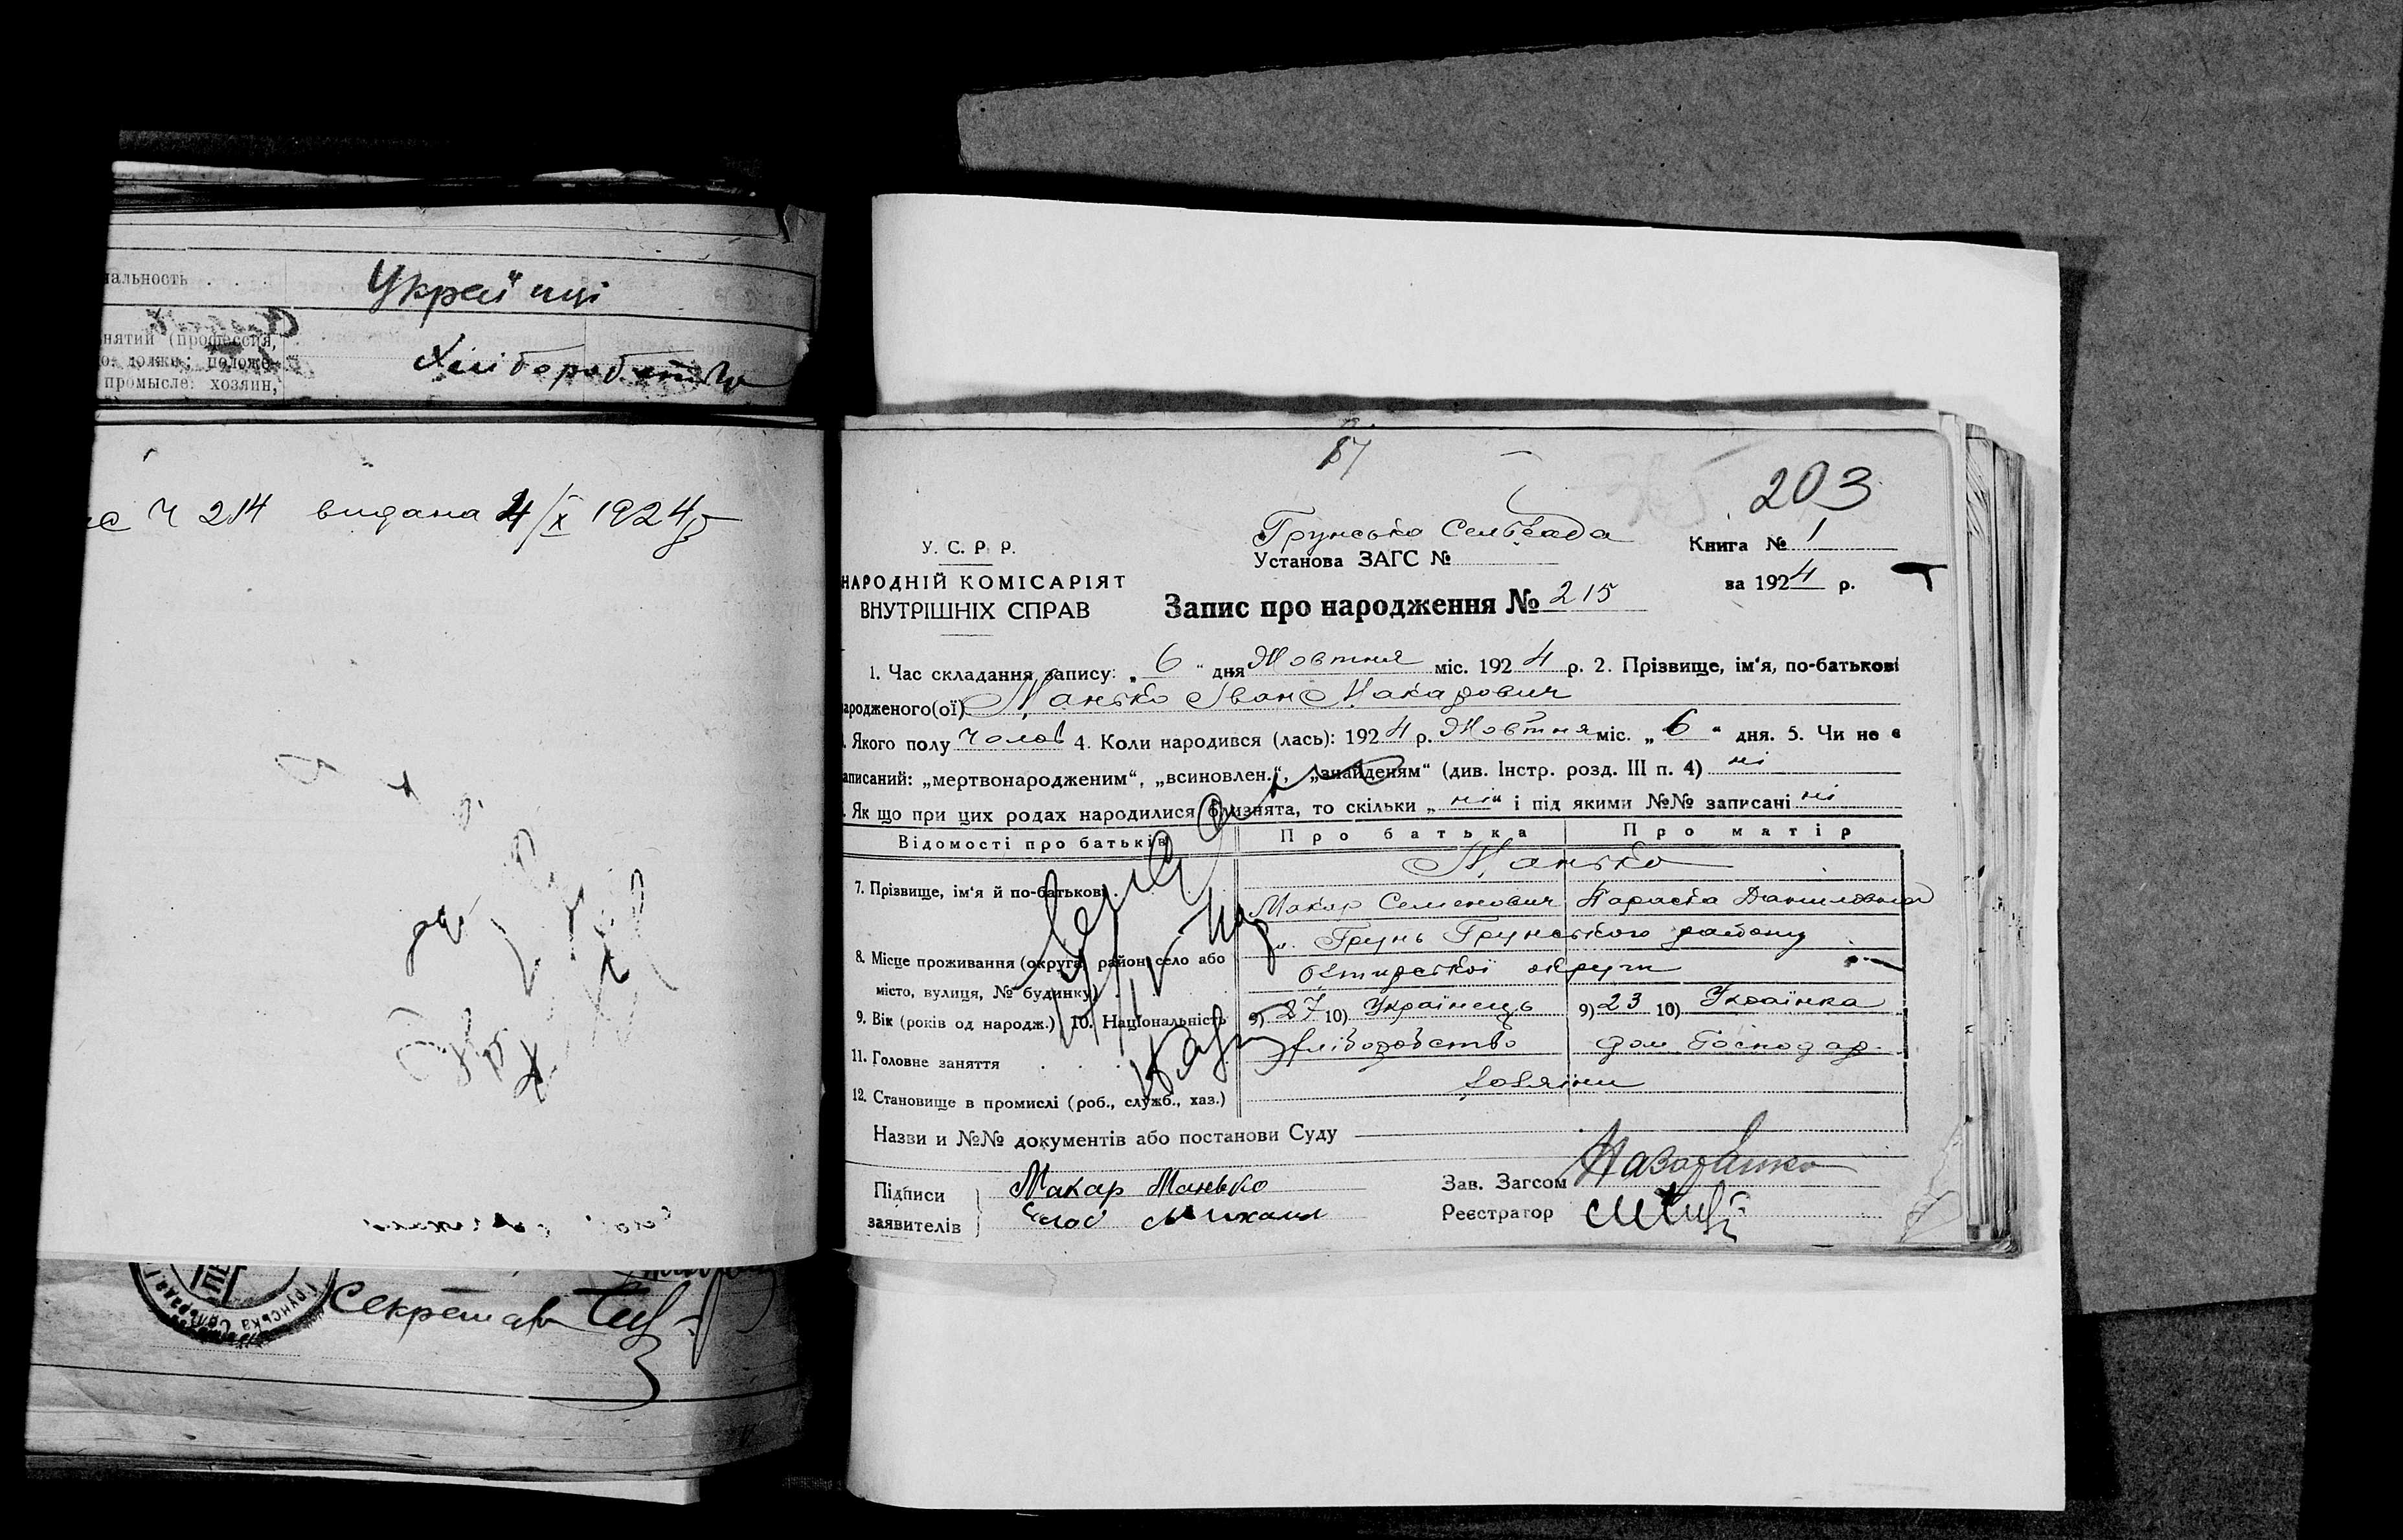 нальность . . .
Украї"нці
нятий (профессия,
положе-
промысле: хозяин,
Хліборобство
Ч 214 видана 4/X 1924 р
Грунська Сільрада
Секретар
87
203
Грунська Сельрада
У. С. Р. Р.
Установа ЗАГС №
Книга № 1
НАРОДНІЙ КОМІСАРІЯТ
ВНУТРІШНІХ СПРАВ
за 1924 р.
Запис про народження № 215
1. Час складання запису: „ 6 " дня Жовтня міс. 1924 р. 2. Прізвище, ім'я, по-батькові
народженого(ої) Манько Іван Макарович
. Якого полу чолов 4. Коли народився (лась): 1924 р. Жовтня міс. „ 6 " дня. 5. Чи не є
аписаний: „мертвонародженим", „всиновлен.", „знайденям" (див. Інстр. розд. III п. 4) ні
. Як що при цих родах народилися близнята, то скільки „ ні " і під якими №№ записані ні
Відомості про батьків
Про батька
Про матір
Манько
7. Прізвище, ім'я й по-батькові
Макар Семенович
Параска Даниловна
Грунь Грунського району
8. Місце проживання (округа, район, село або
місто, вулиця, № будинку)
Охтирської округи
9. Вік (років од народж.) 10. Національність
9) 27 10) Українець
9) 23 10) Українка
11. Головне заняття . . . .
Хліборобство
дом. Господар.
12. Становище в промислі (роб., служб., хаз.)
хозяїни
Назви и №№ документів або постанови Суду
Підписи
заявителів
Макар Манько
Михаил
Зав. Загсом
Реєстратор